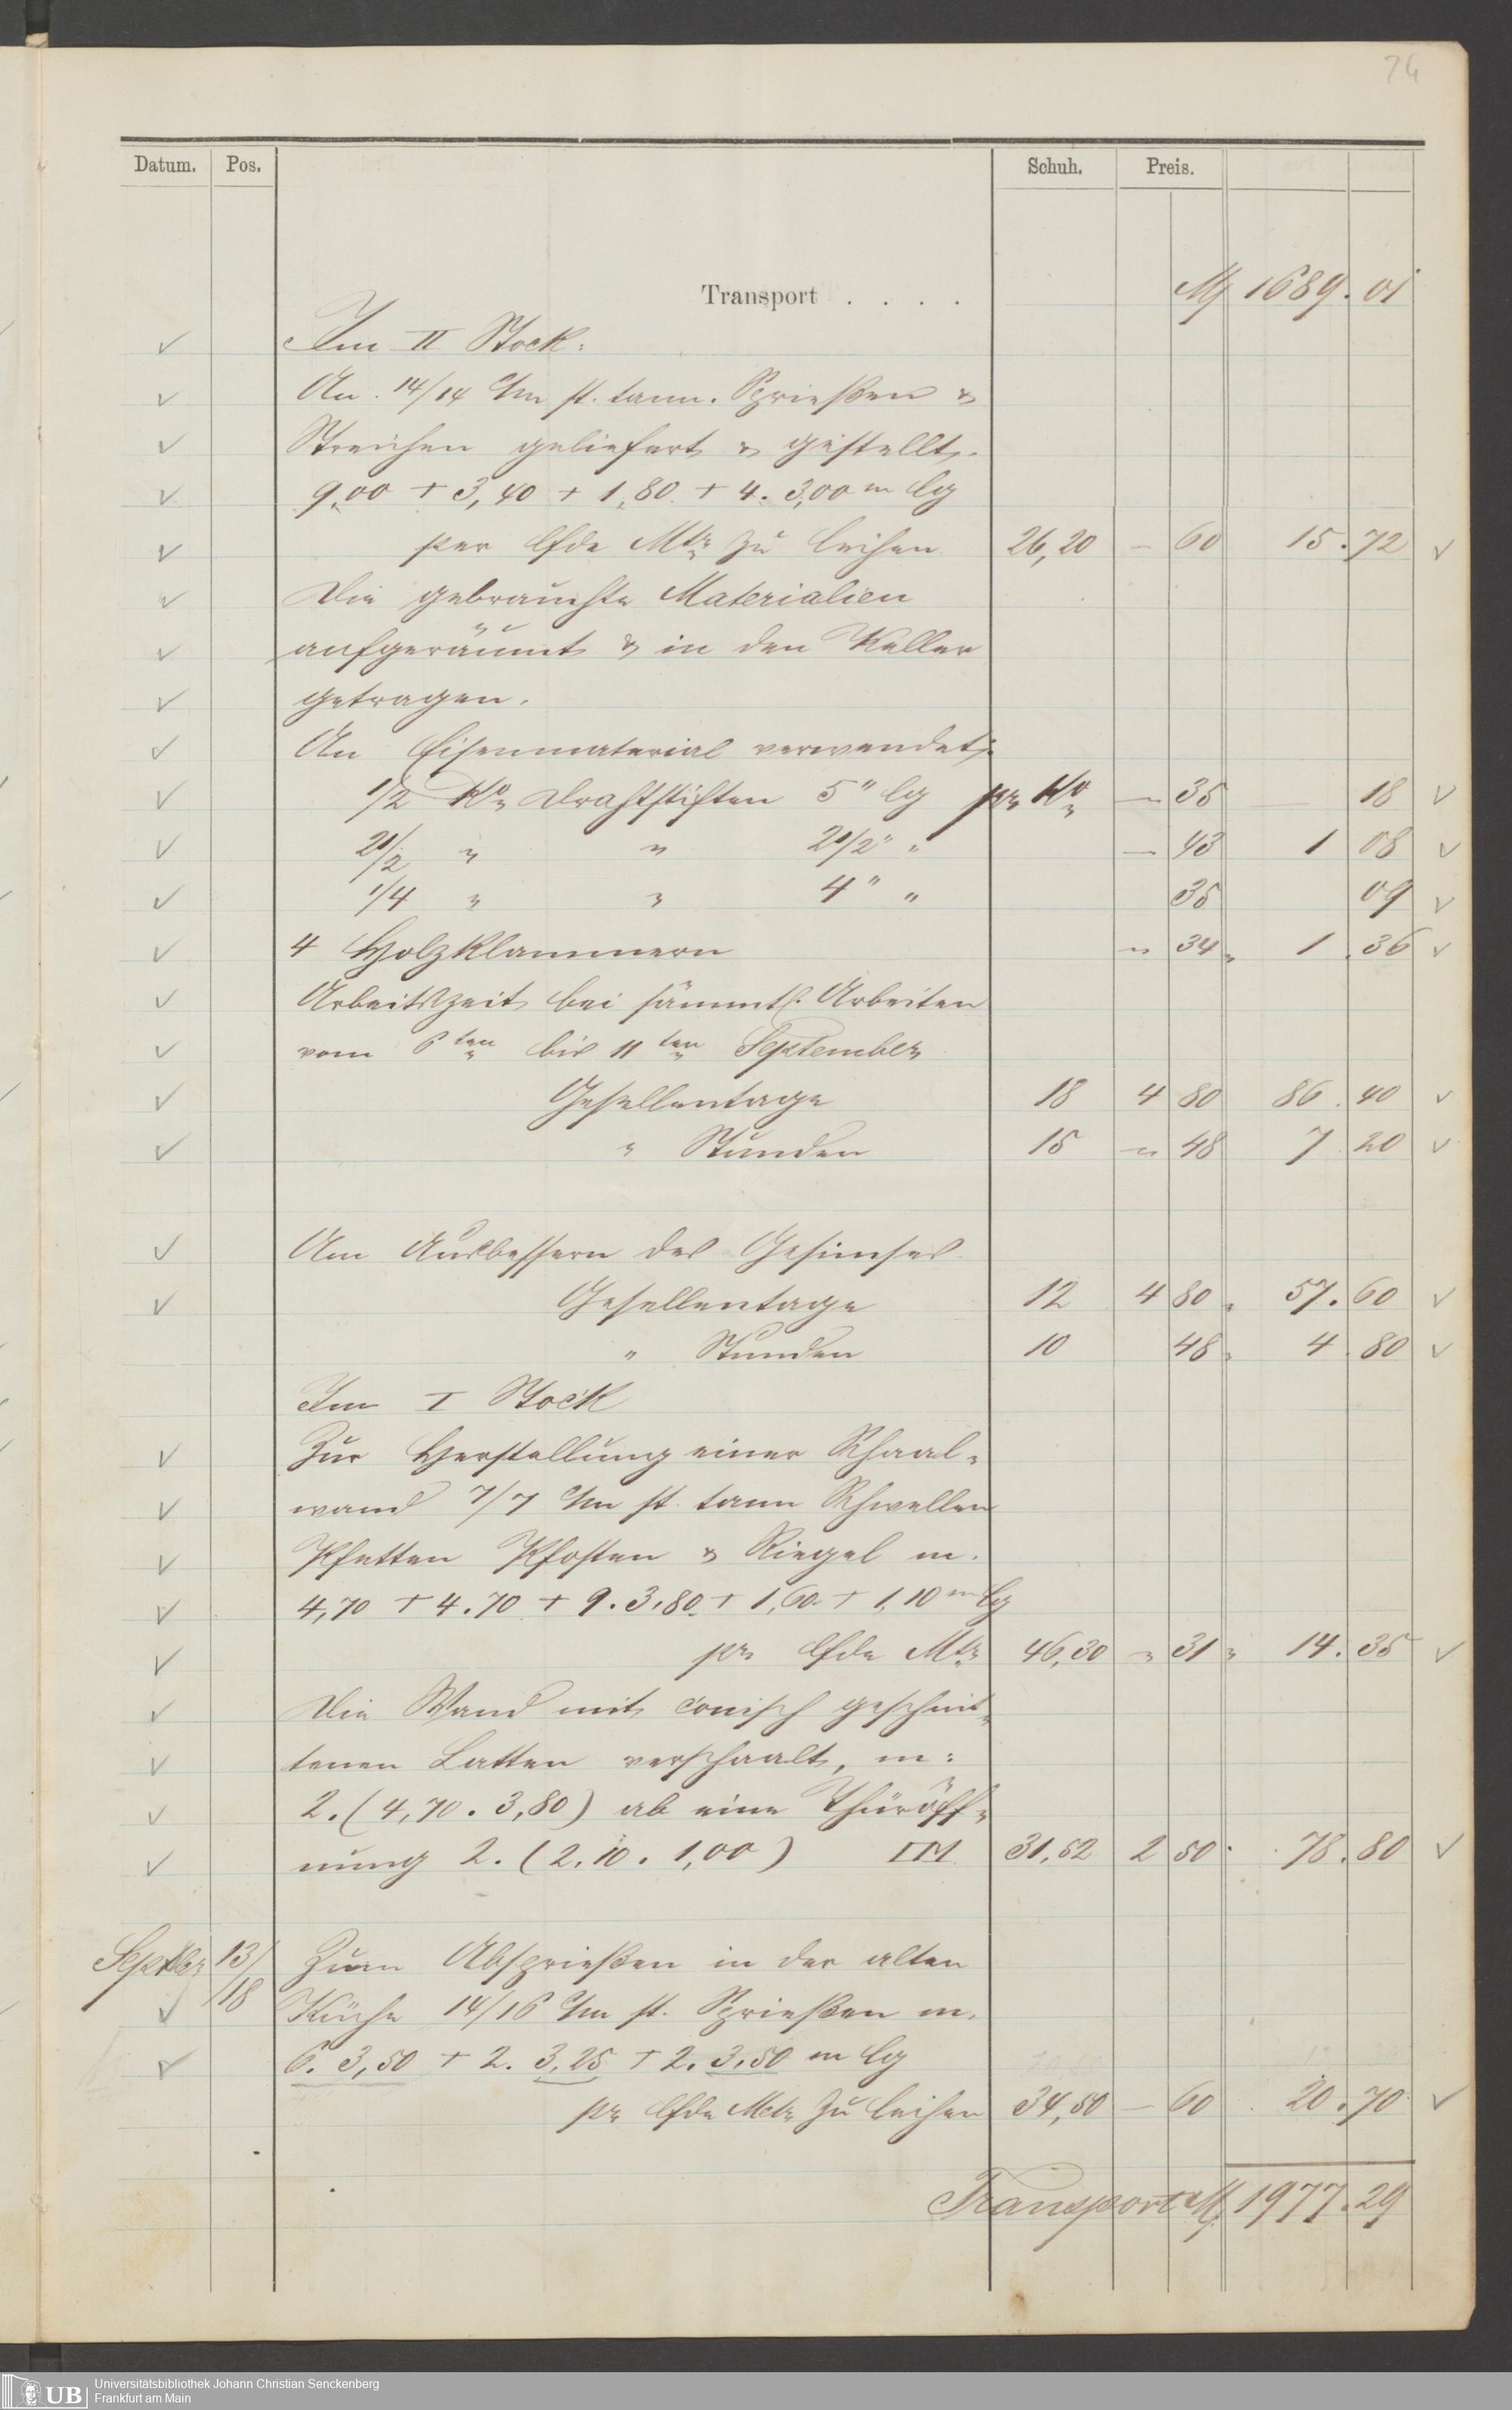 74
Datum. Pos. Schuh. Preis.
Transport . . . . M 1689. 01
Im II Stock:
An 14/14 c/m st. tann. Sprießen &
Streichen geliefert & gestellt.
9,00 + 3,40 + 1,80 + 4. 3,00 m lg
per lfde Mtr zu leihen 26,20 – 60 15. 72
Die gebrauchte Materialien
aufgeräumt & in den Keller
getragen.
An Eisenmaterial verwendet:
1/2 Ko Drahtstiften 5" lg pr Ko – 35 18
2 1/2 " " 2 1/2" " – 43 1 08
1/4 " " 4" " 35 09
4 Holzklammern " 34 1. 36
Arbeitszeit bei sämmtl. Arbeiten
vom 6ten bis 11ten September
Gesellentage 18 4 80 86. 40
" Stunden 15 " 48 7 20
Am Ausbessern des Gesimses
Gesellentage 12 4 80 57. 60
" Stunden 10 48 4. 80
Im I Stock
Zur Herstellung einer Schaal-
wand 7/7 c/m st. tann Schwellen
Pfetten Pfosten & Riegel m.
4,70 + 4.70 + 9. 3,80 + 1,60 + 1,10 m lg
pr lfde Mtr 46,30 " 31 14. 35
Die Wand mit conisch geschnit-
tenen Latten verschaalt, m:
2. (4,70. 3,80) ab eine Thüröff-
nung 2. (2,10. 1,00) □M 31,52 2 50 78. 80
Septbr 13/ Zum Absprießen in der alten
/18 Küche 14/16 c/m st. Sprießen m.
6. 3,50 + 2. 3,25 + 2. 3,50 m lg
pr lfde Metr zu leihen 34,50 – 60 20. 70
Transport M 1977. 29
UB Universitätsbibliothek Johann Christian Senckenberg
Frankfurt am Main